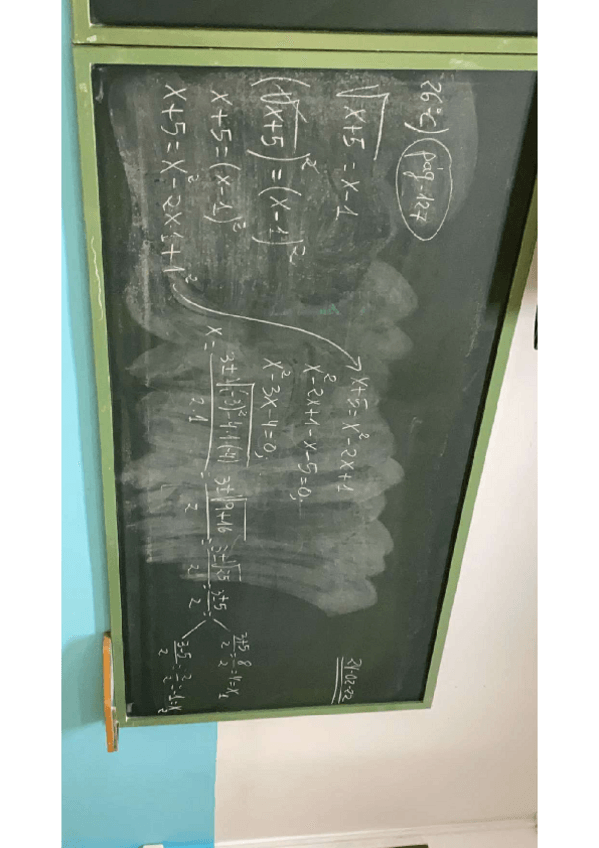 26-c) pág-127
√x+5 = x-1
(√x+5)² = (x-1)²
x+5 = (x-1)²
x+5 = x²-2x1+1²
→ x+5 = x²-2x+1
x²-2x+1-x-5=0;
x²-3x-4=0;
x = 3±√(-3)²-4·1·(-4) / 2·1 = 3±√9+16 / 2 = 3±√25 / 2·1 = 3±5 / 2 =
3+5 / 2 = 8 / 2 = 4 = x₁
3-5 / 2 = -2 / 2 = -1 = x₂
21-02-22